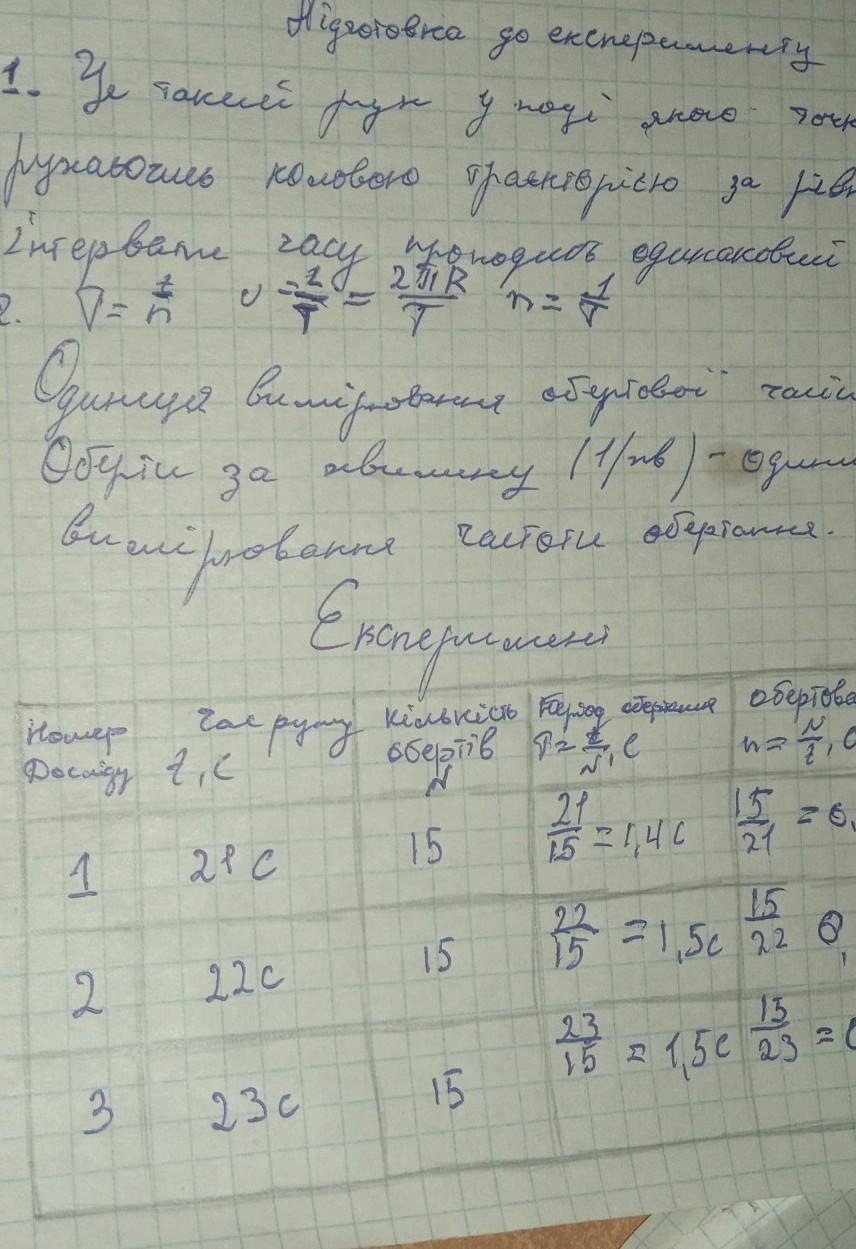 Підготовка до експерименту
1. Це такий рух у ході якого точк
рухаючись коловою траєкторією за рівн
інтервали часу проходить однаковий
2. T = t/n υ = l/T = 2πR/T n = 1/T
Одиниця вимірювання обертової
Оберти за хвилину (1/хв) - один
вимірювання частоти обертання.
Експеримент
Номер Досліду час руху t, с кількість обертів N Період обертання T = t/N, с обертова n = N/t, с
1 21 с 15 21/15 = 1,4 с 15/21 = 0,
2 22 с 15 22/15 = 1,5 с 15/22 0,
3 23 с 15 23/15 = 1,5 с 15/23 = 0